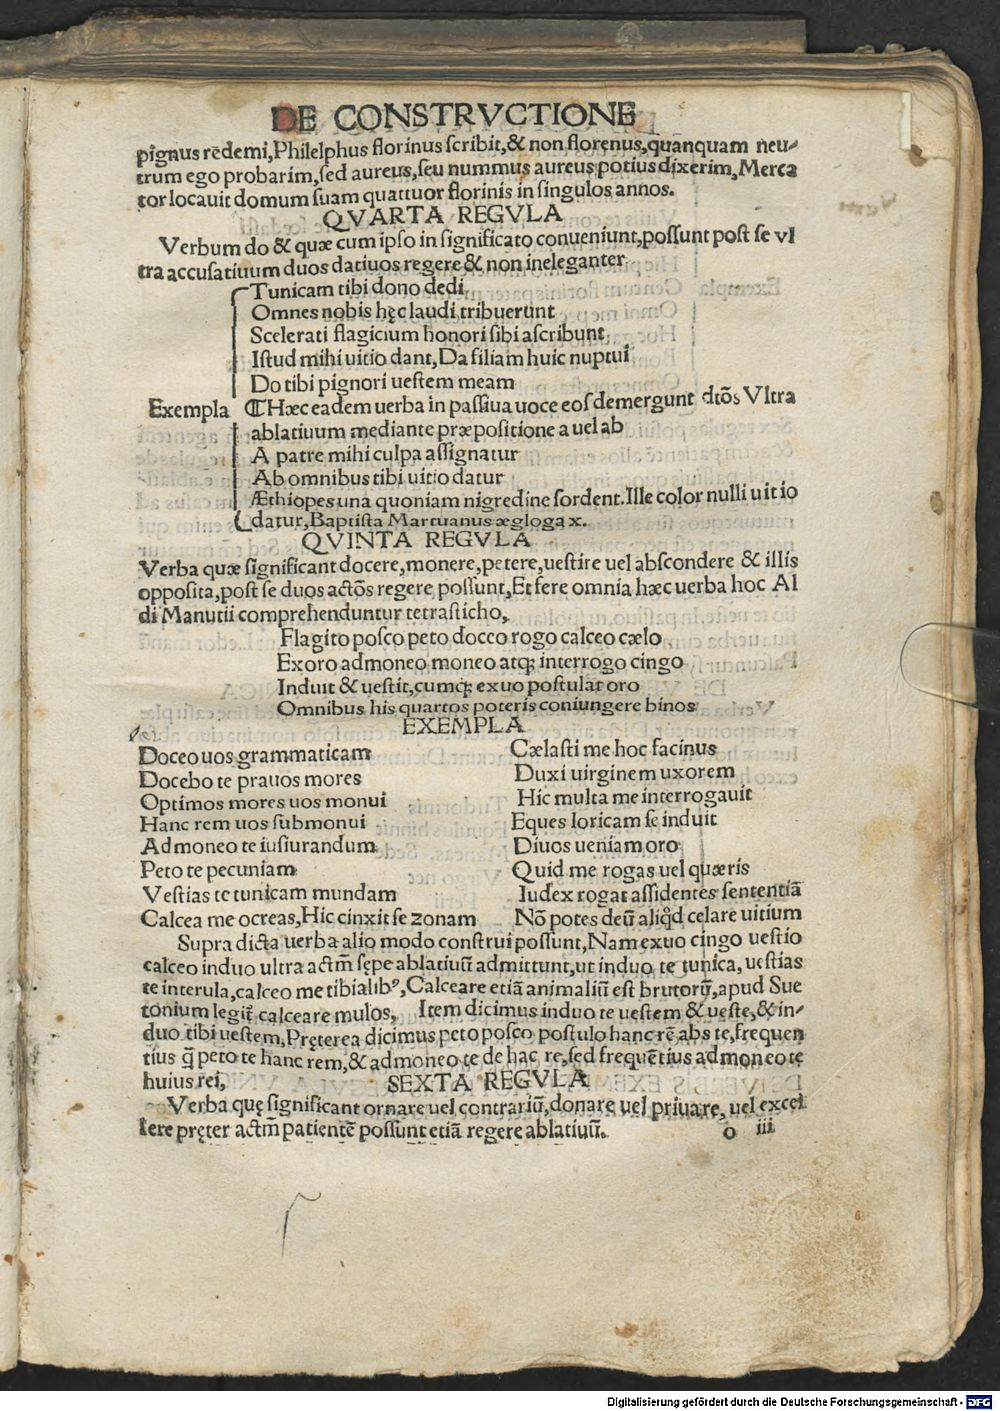 DE CONSTRVCTIONE
pignus rēdemi,Philelphus florinus ſcribit,& non florenus,quanquam neu-
trum ego probarim,ſed aureus,ſeu nummus aureus potius dixerim,Merca
tor locauit domum ſuam quattuor florinis in ſingulos annos.
QVARTA REGVLA
Verbum do & quæ cum ipſo in ſignificato conueniunt,poſſunt poſt ſe vl
tra accuſatiuum duos datiuos regere & non ineleganter
Tunicam tibi dono dedi
Omnes nobis hęc laudi tribuerunt
Scelerati flagicium honori ſibi aſcribunt
Iſtud mihi uitio dant,Da filiam huic nuptui
Do tibi pignori ueſtem meam
Exempla ¶Hæc eadem uerba in paſſiua uoce eoſdem regunt dtōs Vltra
ablatiuum mediante præpoſitione a uel ab
A patre mihi culpa aſſignatur
Ab omnibus tibi uitio datur
Æthiopes una quoniam nigredine ſordent.Ille color nulli uitio
datur,Baptiſta Mantuanus ægloga x.
QVINTA REGVLA
Verba quæ ſignificant docere,monere,petere,ueſtire uel abſcondere & illis
oppoſita,poſt ſe duos actōs regere poſſunt,Et fere omnia hæc uerba hoc Al
di Manutii comprehenduntur tetraſticho,
Flagito poſco peto docco rogo calceo cælo
Exoro admoneo moneo atq; interrogo cingo
Induit & ueſtit,cumq; exuo poſtulat oro
Omnibus his quartos poteris coniungere binos
EXEMPLA
Doceo uos grammaticam
Docebo te prauos mores
Optimos mores uos monui
Hanc rem uos ſubmonui
Admoneo te iuſiurandum
Peto te pecuniam
Veſtias te tunicam mundam
Calcea me ocreas,Hic cinxit ſe zonam
Cælaſti me hoc facinus
Duxi uirginem uxorem
Hic multa me interrogauit
Eques loricam ſe induit
Diuos ueniam oro
Quid me rogas uel quæris
Iudex rogat aſſidentes ſententiā
Nō potes deū aliqd celare uitium
Supra dicta uerba alio modo conſtrui poſſunt,Nam exuo cingo ueſtio
calceo induo ultra actm̄ ſępe ablatiuū admittunt,ut induo te tunica,ueſtias
te interula,calceo me tibialibꝰ,Calceare etiā animaliū eſt brutorū,apud Sue
tonium legit̄ calceare mulos, Item dicimus induo te ueſtem & ueſte,& in-
duo tibi ueſtem,Pręterea dicimus peto poſco poſtulo hanc rē abs te,frequen
tius q̄ peto te hanc rem,& admoneo te de hac re,ſed frequētius admoneo te
huius rei,
SEXTA REGVLA
Verba quę ſignificant ornare uel contrariū,donare uel priuare,uel excel
lere pręter actm̄ patientē poſſunt etiā regere ablatiuū.
o iii
Digitalisierung gefördert durch die Deutsche Forschungsgemeinschaft - DFG